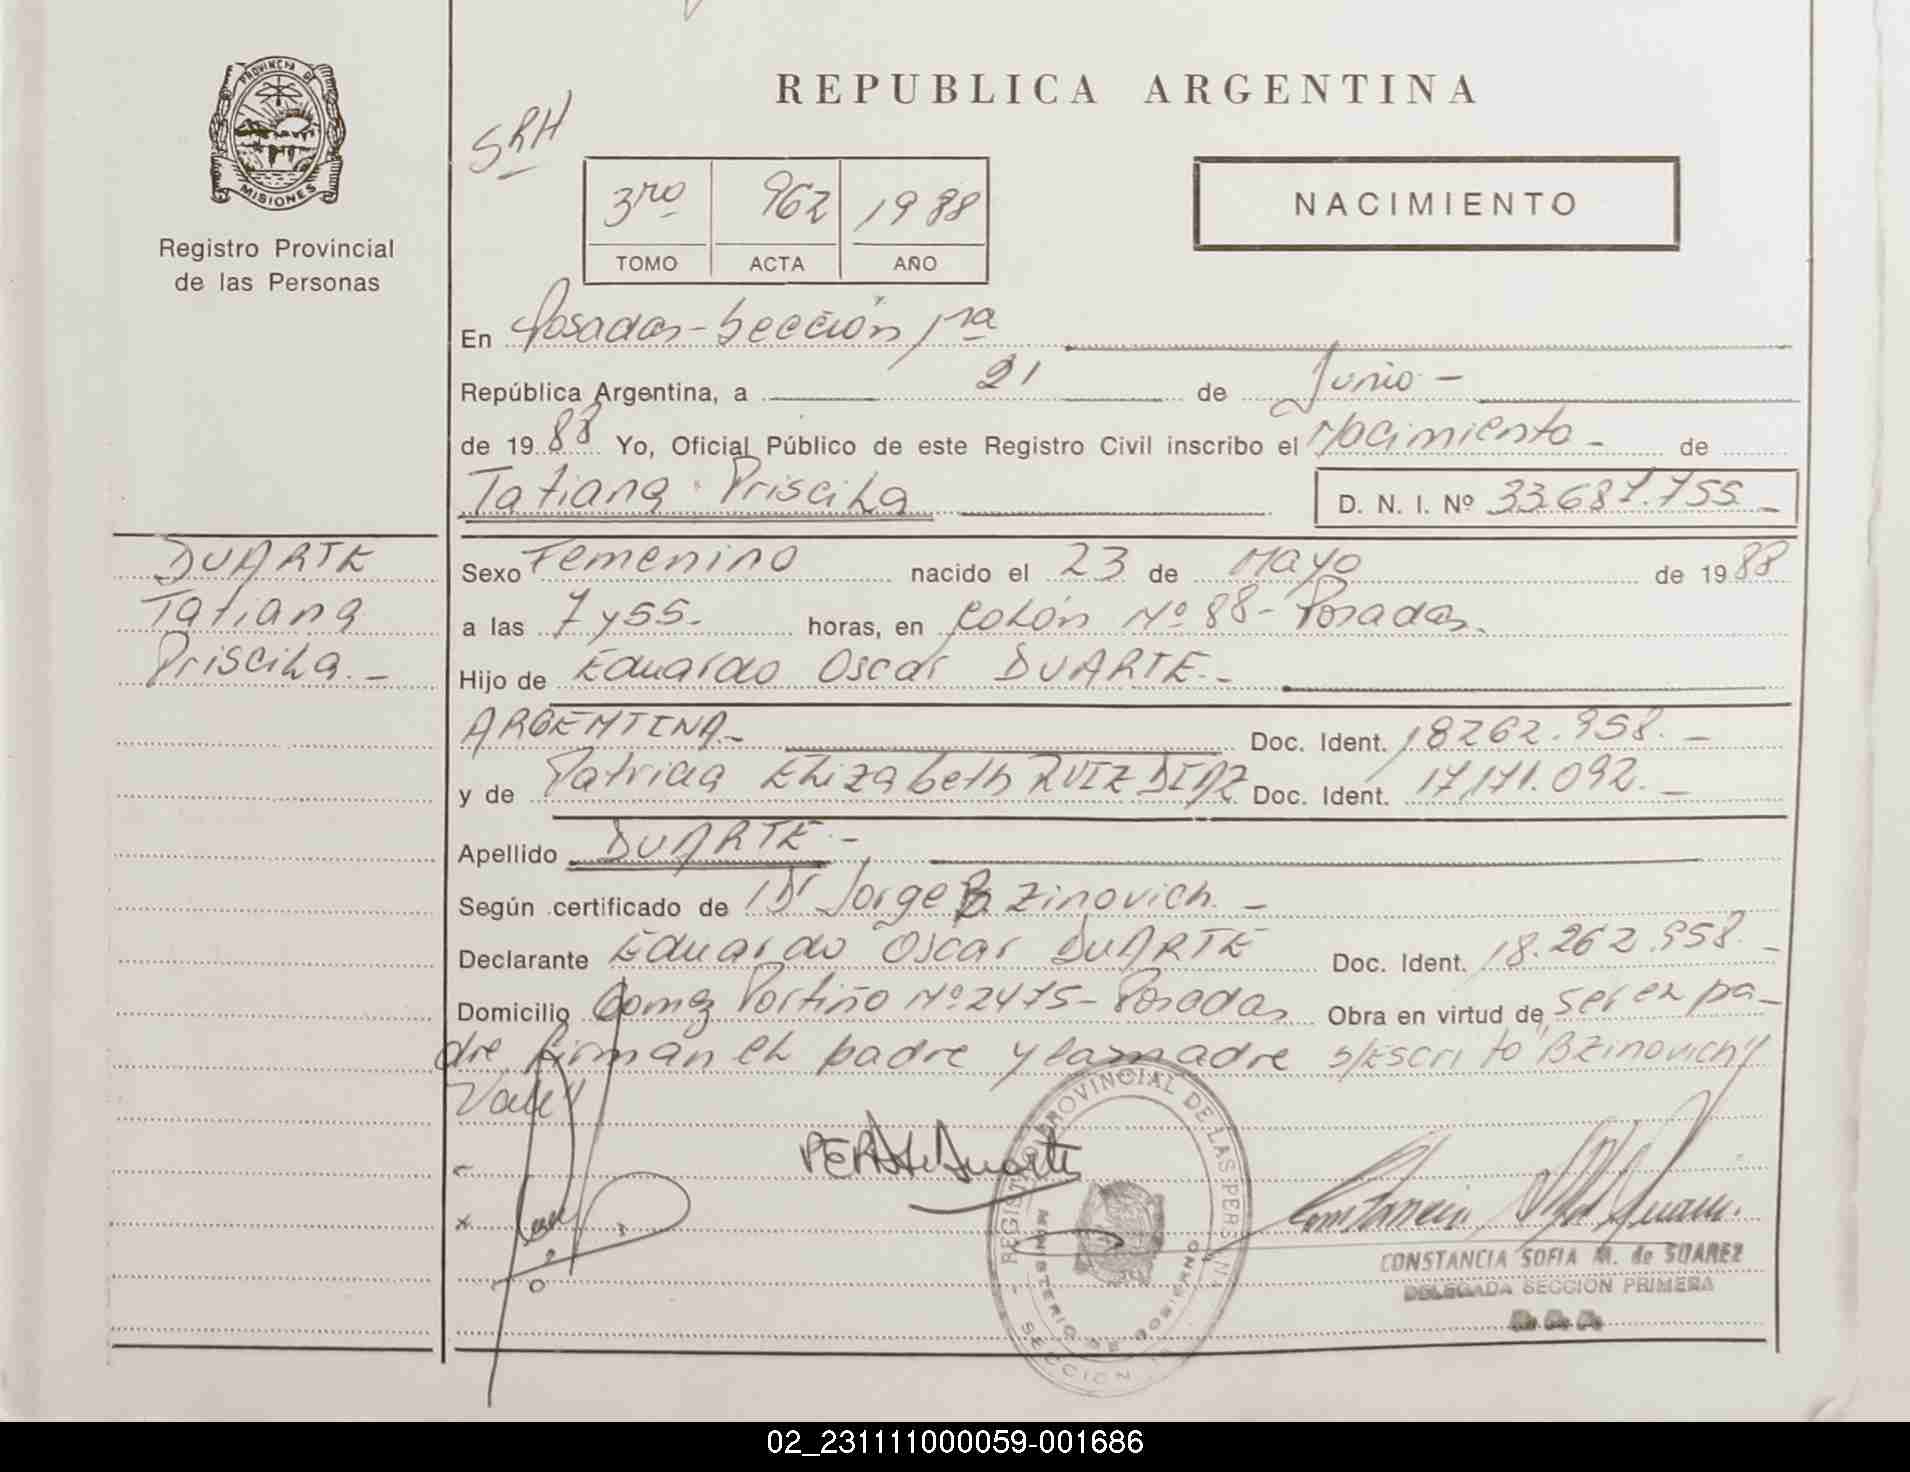 PROVINCIA DE
MISIONES
Registro Provincial
de las Personas
REPUBLICA ARGENTINA
SRH
3ro 962 1988
TOMO ACTA AÑO
NACIMIENTO
En Posadas - Sección 1ra
República Argentina, a 21 de Junio -
de 1988 Yo, Oficial Público de este Registro Civil inscribo el Nacimiento - de
Tatiana Priscila D. N. I. Nº 33.687.755 -
DUARTE
Tatiana
Priscila. -
Sexo Femenino nacido el 23 de Mayo de 1988
a las 7 y 55. horas, en Colón Nº 88 - Posadas.
Hijo de Eduardo Oscar DUARTE. -
ARGENTINA - Doc. Ident. 18262.958. -
y de Patricia Elizabeth RUIZ DIAZ Doc. Ident. 17.171.092. -
Apellido DUARTE -
Según certificado de Dr Jorge Bzinovich -
Declarante Eduardo Oscar DUARTE Doc. Ident. 18.262.958. -
Domicilio Goma Portiño Nº 2475 - Posadas Obra en virtud de ser el pa-
dre firman el padre y la madre s/Escrito "Bzinovich"
Vale"
PER de Duarte
REGISTRO PROVINCIAL DE LAS PERSONAS
MINISTERIO DE GOBIERNO
SECCION 1ª
CONSTANCIA SOFIA M. de SUAREZ
DELEGADA SECCION PRIMERA
02_231111000059-001686